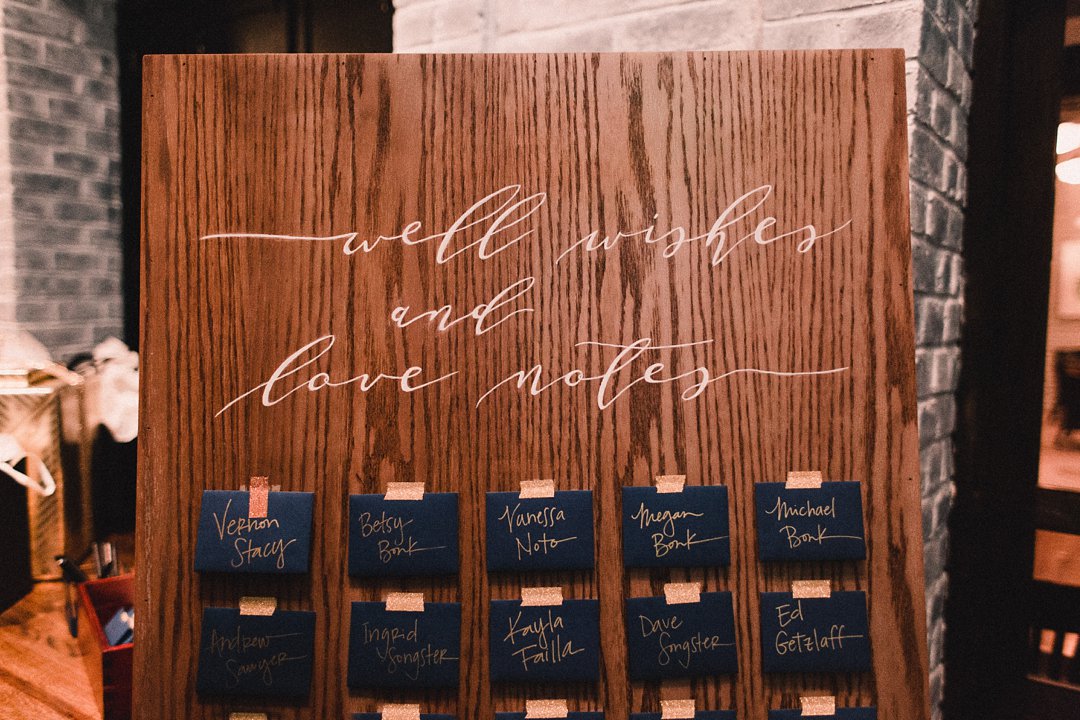 well wishes
and
love notes
Vernon
Stacy
Betsy
Bonk
Vanessa
Noto
Megan
Bonk
Michael
Bonk
Andrew
Sawyer
Ingrid
Songster
Kayla
Failla
Dave
Songster
Ed
Getzlaff